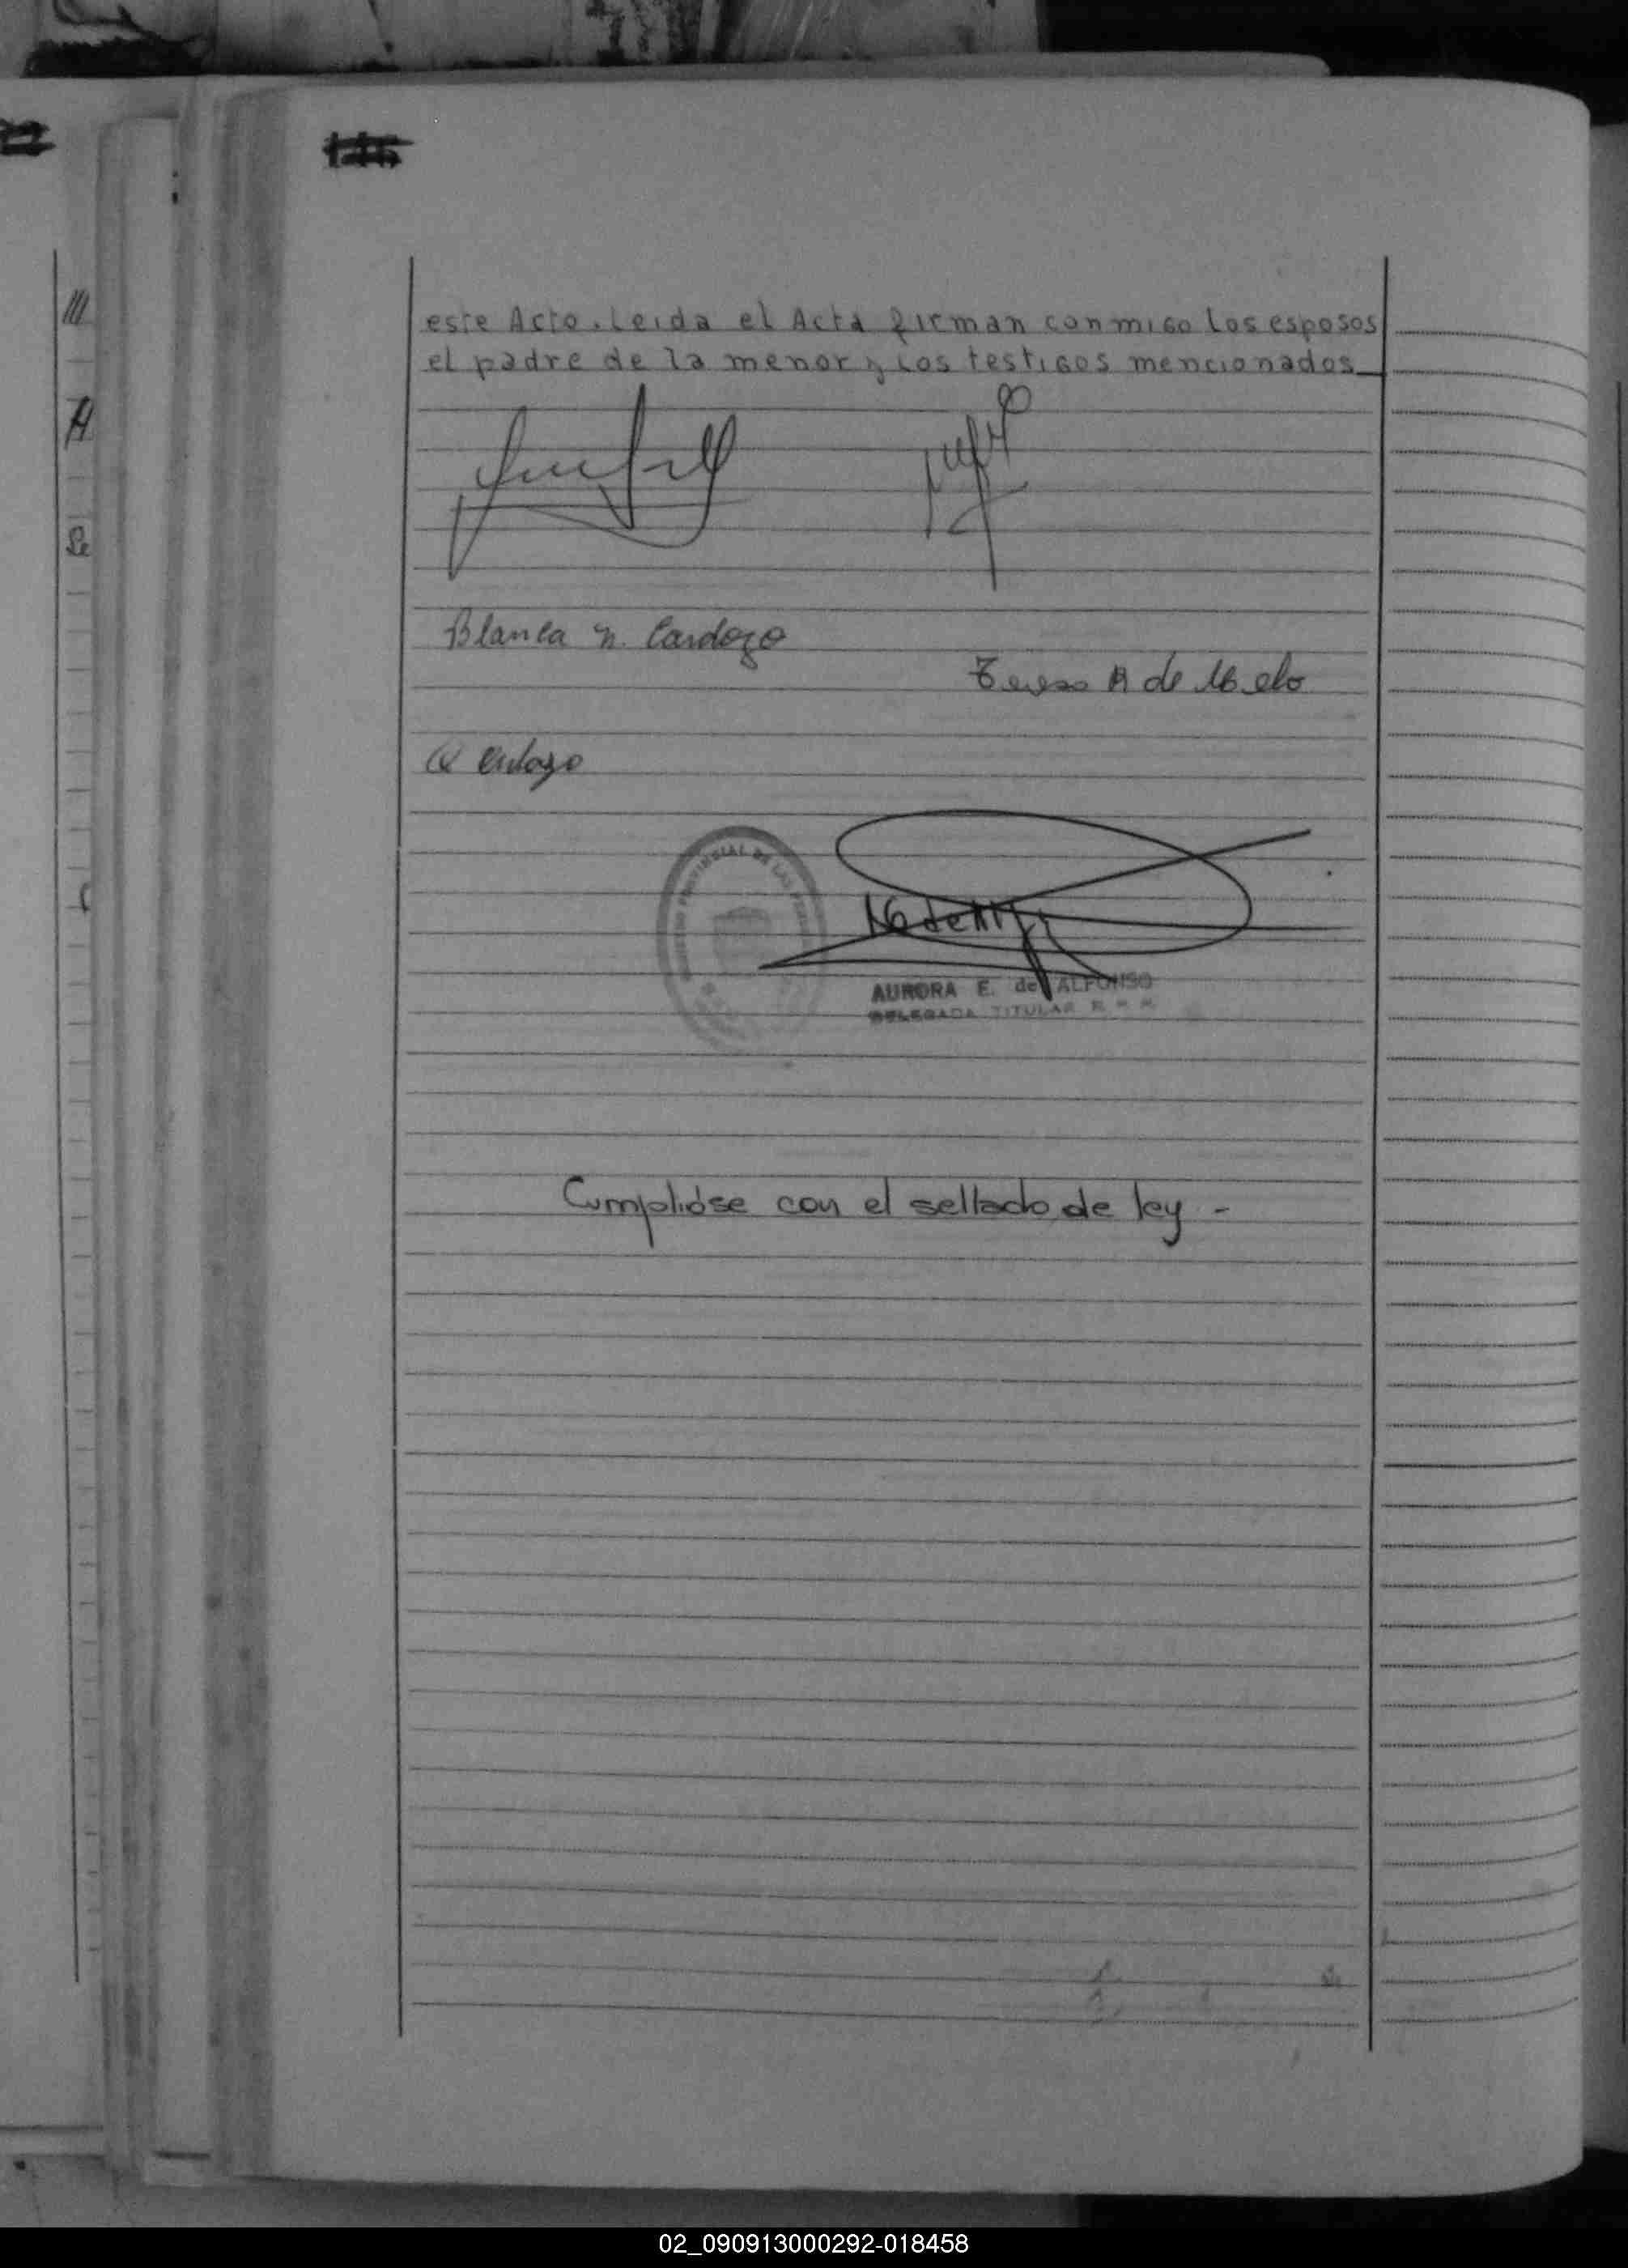 este Acto. Leida el Acta firman conmigo los esposos
el padre de la menor y los testigos mencionados
Blanca N. Cardozo
Teresa A de Melo
AURORA E. de ALFONSO
DELEGADA TITULAR
Cumplióse con el sellado de ley -
02_090913000292-018458